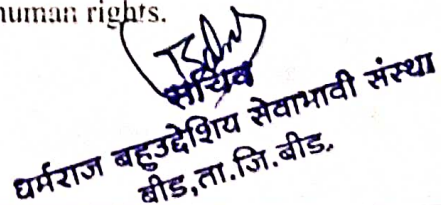 human rights.
सचिव
धर्मराज बहुउद्देशिय सेवाभावी संस्था
बीड,ता.जि.बीड.